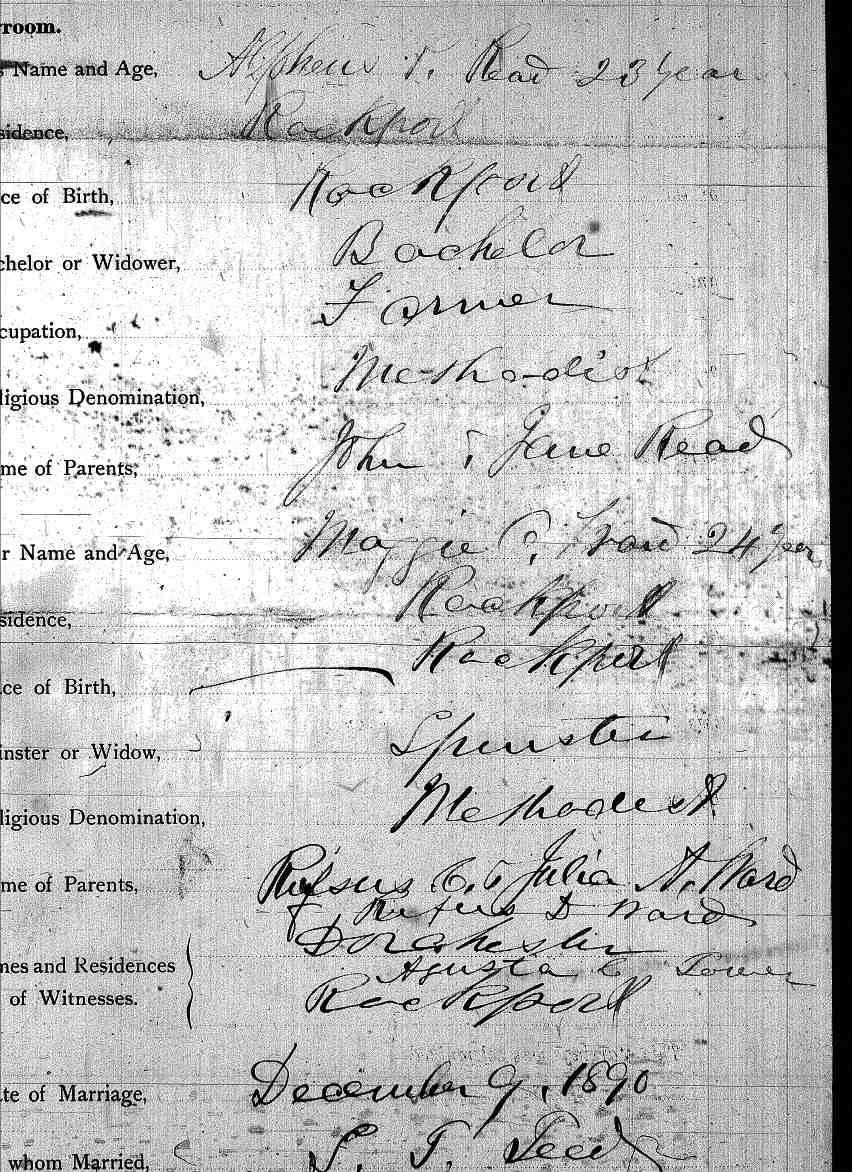 room.
s Name and Age, Alpheus P. Read 23 year
sidence, Rockport
ce of Birth, Rockport
chelor or Widower, Bachelor
cupation, Farmer
ligious Denomination, Methodist
me of Parents, John & Jane Read
r Name and Age, Maggie C. Ward 24 year
sidence, Rockport
ce of Birth, Rockport
inster or Widow, Spinster
ligious Denomination, Methodist
me of Parents, Rufus C. & Julia A. Ward
Rufus D Ward
Dorchester
mes and Residences
Agusta Tower
of Witnesses. Rockport
te of Marriage, December 9, 1890
whom Married, S. T. Teed